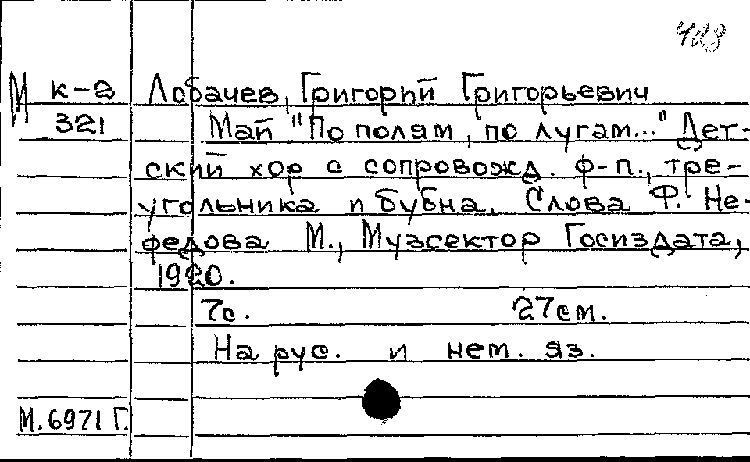 428
М к-2 Лобачев, Григорий Григорьевич
321 Май "По полям, по лугам..." Дет-
ский хор с сопровожд. ф-п., тре-
угольника и бубна. Слова Ф. Не-
федова М., Музсектор Госиздата,
1920.
7с. 27см.
На рус. и нем. яз.
М.6971 Г.